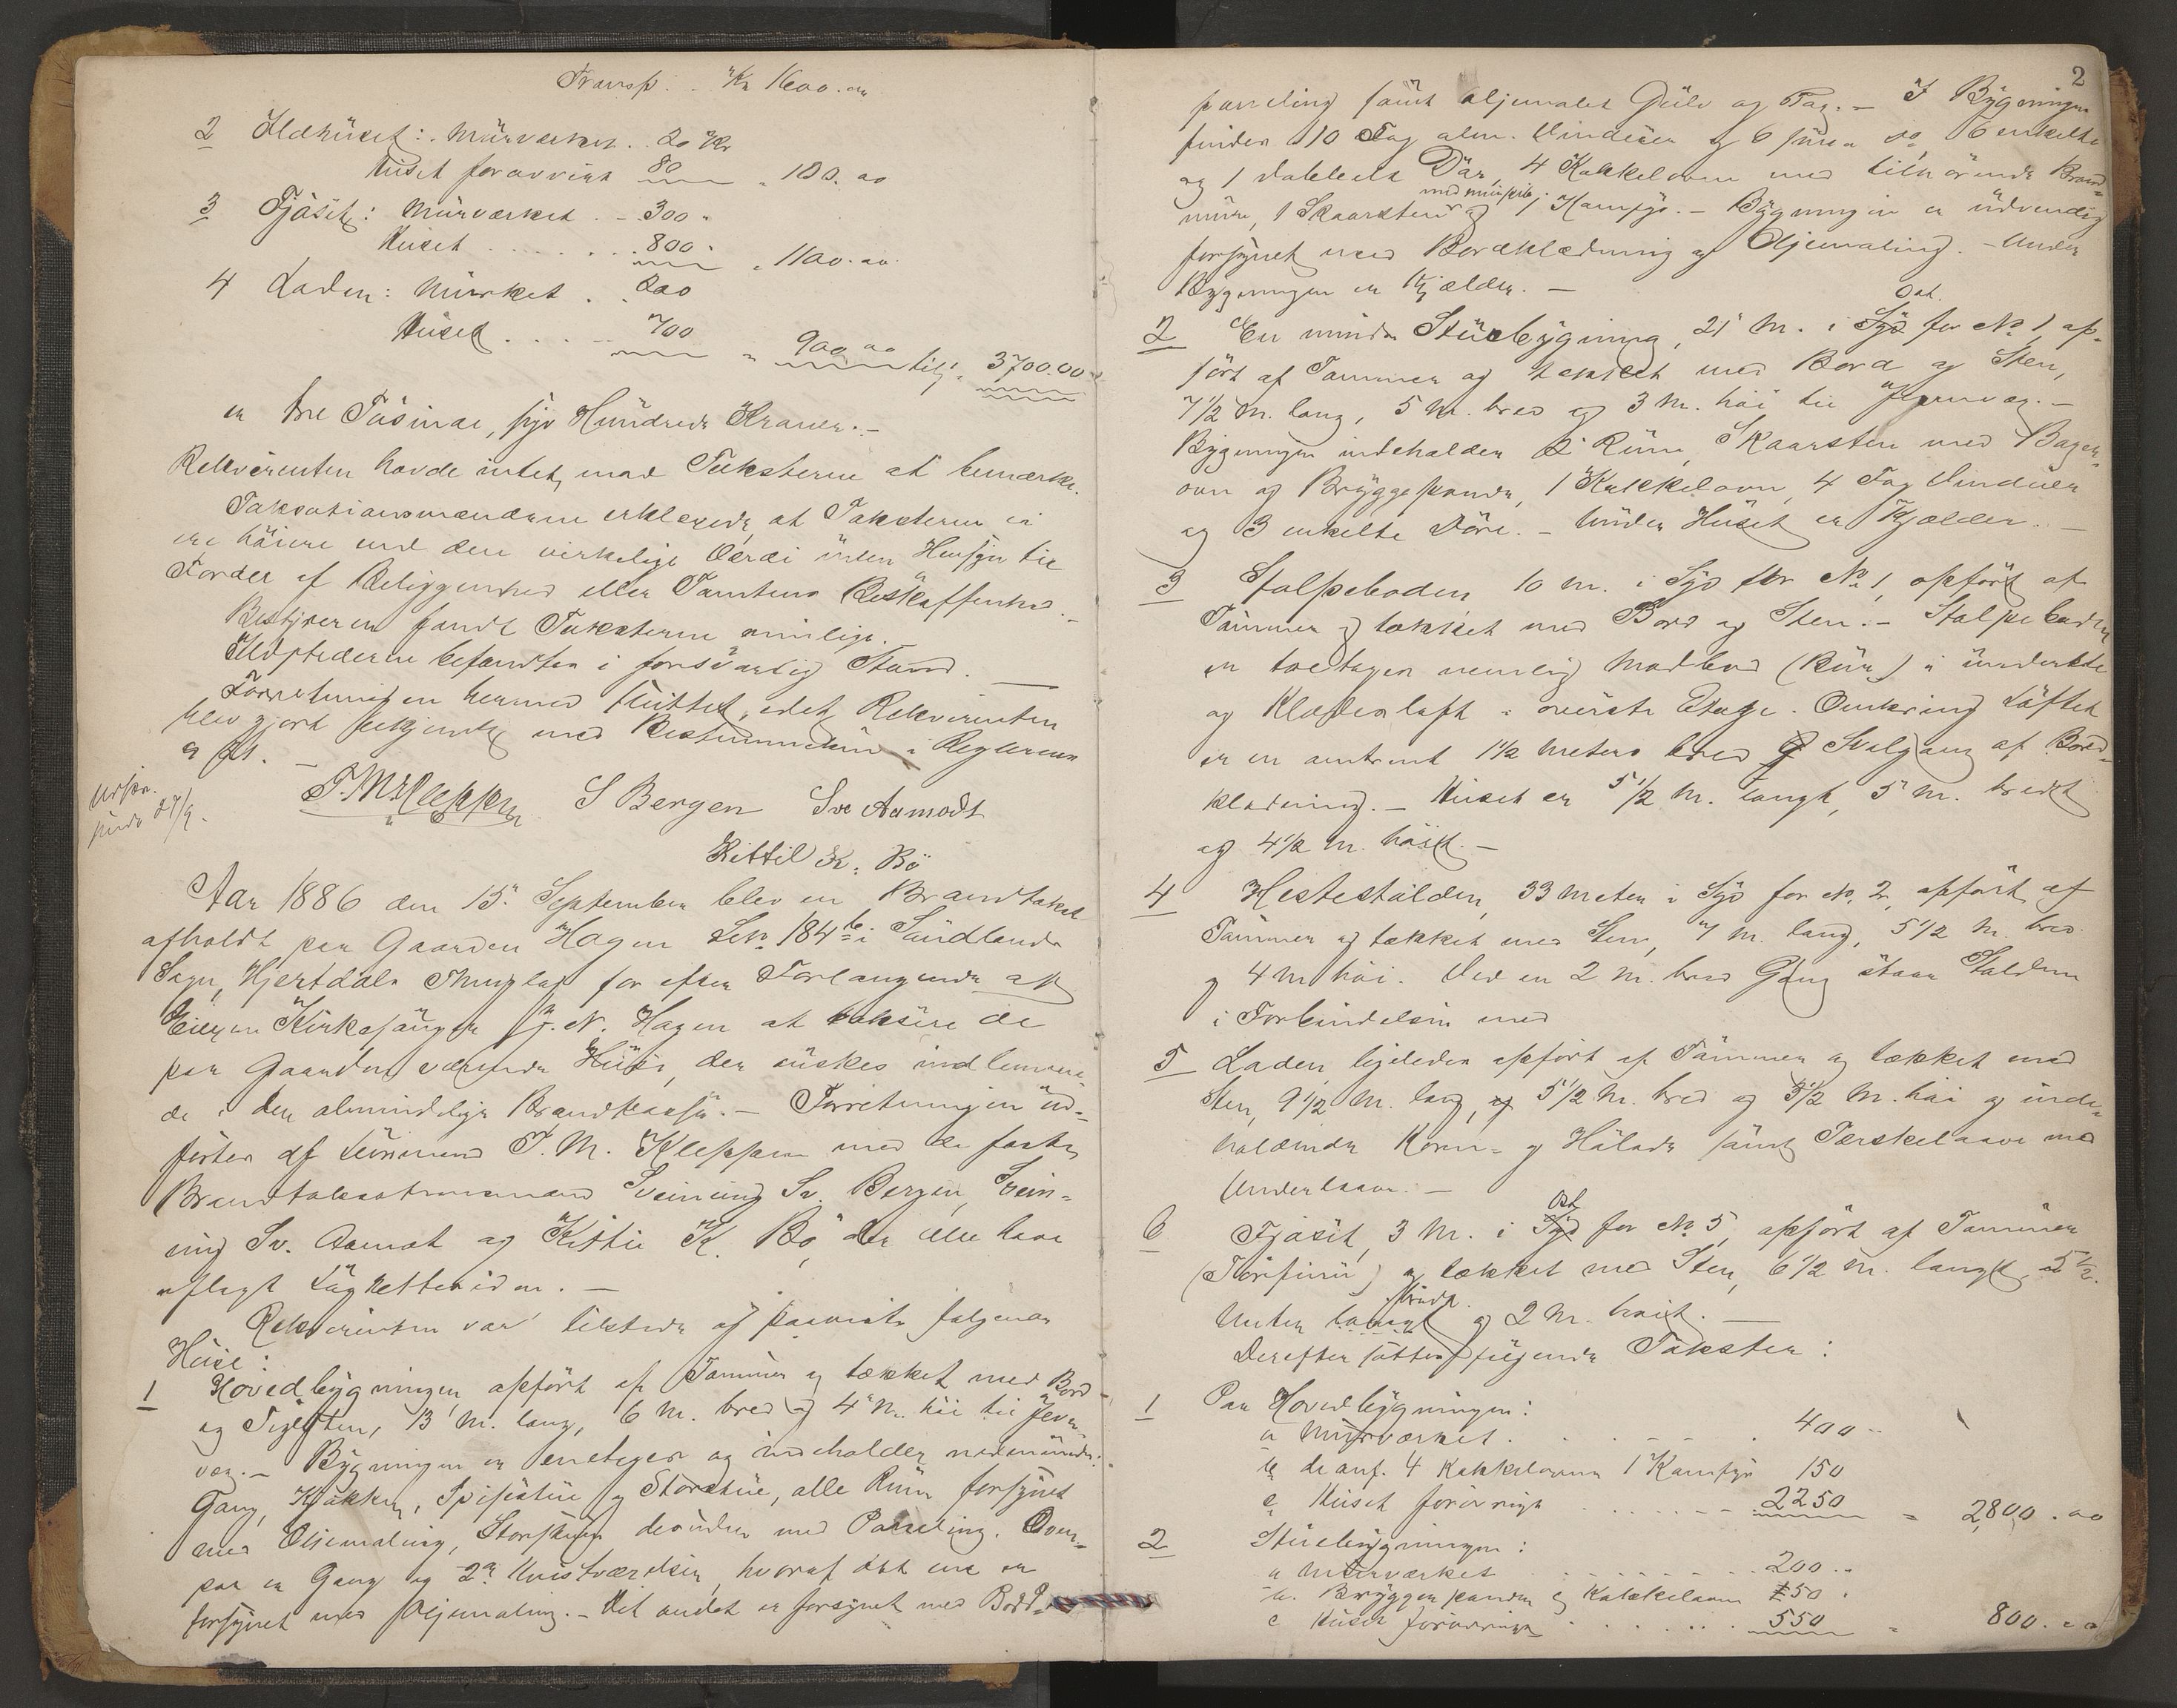 Transp. . Kr 1600.00
2 Ildhuset: Murværket . 20 Kr
Huset forøvrigt 80 " 100.00
3 Fjøset: Murværket . - 300 "
Huset . . . . . . 800 " " 1100.00
4 Laden: Murket . . 200
Huset . . . - 700 " 900 00 tils. " 3700.00
er tre Tusinde, syv Hundrede Kroner. -
Rekvirenten havde intet mod Taksterne at bemærke.
Taksationsmændene erklærede at Taksterne ei
ere høiere end den virkelige Værdi uden Hensyn til
Fordel af Beliggenhed eller Tomtens Beskaffenhed. -
Bestyreren fandt Taksterne rimelige.
Ildstederne befandtes i forsvarlig Stand. —
Forretningen hermed sluttet, idet Rekvirenten
blev gjort bekjendt med Bestemmelsen i Reglernes
§ 21. —
Udskr.
sendt 27/9.
T. M. Kleppen S Bergen Sve Aamodt
Kittil K. Bö
Aar 1886 den 15. September blev en Brandtakst
afholdt paa Gaarden Hagen Lnr. 184 b i Sandlands
Sogn, Hjertdals Thinglag for efter Forlangende af
Eieren Kirkesanger J. N. Hagen at taksere de
paa Gaarden værende Huse, der önskes indlemme-
de i den almindelige Brandkasse. - Forretningen ud-
förtes af Lensmand T. M. Kleppen med de faste
Brandtakstmænd Sveinung Sv. Bergen, Svein-
ung Sv. Aamot og Kittil K. Bö der alle have
aflagt Lagretteeden. -
Rekvirenten var tilstede og paaviste følgende
Huse:
1 Hovedbygningen, opført af Tømmer og tækket med Bord
og Teglsten, 13 M. lang, 6 M. bred og 4 M. høi til Jevn-
væg. - Bygningen er enetages og indeholder nedenunder:
Gang, Kjøkken, Spisestue og Storstue, alle Rum forsynet
med Oljemaling, Storstuen desuden med Paneling. Oven-
paa er Gang og 2 Kvistværelser, hvoraf det ene er
forsynet med Oljemaling. - Det andet er forsynet med Bord-
2
paneling samt oljemalet Gulv og Tag. - I Bygningen
findes 10 Fag alm. Vinduer og 6 smaa do, 6 enkelte
og 1 dobbelt Dør, 4 Kakkelovne med tilhørende Brand-
mure, 1 Skaarsten med murpibe og 1 Komfyr. - Bygningen er udvendig
forsynet med Bordklædning og Oljemaling. - Under
Bygningen er Kjælder. -
2 En mindre Stuebygning, 21 M. i Syd Øst. for No 1, op-
ført af Tømmer og tækket med Bord og Sten,
7 1/2 M. lang, 5 M. bred og 3 M. høi til Jevnvæg. -
Bygningen indeholder 2 Rum, Skaarsten med Bager-
ovn og Bryggepande, 1 Kakkelovn, 4 Fag Vinduer
og 3 enkelte Döre. - Under Huset er Kjælder. -
3 Stolpeboden 10 M. i Syd for No 1, opført af
Tømmer og tækket med Bord og Sten. - Stolpeboden
er toetages nemlig Madbod (Bur) i underste
og Klædesloft i øverste Etage. Omkring Loftet
er en omtrent 1 1/2 Meters bred Svalgang af Bord-
klædning. - Huset er 5 1/2 M. langt, 5 M. bredt
og 4 1/2 M. høit. -
4 Hestestalden, 33 Meter i Syd for No. 2, opført af
Tømmer og tækket med Sten, 7 M. lang, 5 1/2 M. bred
og 4 M høi. Ved en 2 M. bred Gang staar Stalden
i Forbindelse med
5 Laden ligeledes opført af Tømmer og tækket med
Sten, 9 1/2 M. lang, og 5 1/2 M. bred og 3 1/2 M. høi og inde-
holdende Korn- og Hølade samt Tærskelaave med
Underlaave. -
6 Fjøset, 3 M. i Syd Øst for No 5, opført af Tømmer
og tækket med Sten, 6 1/2 M. langt, 5 1/2.
Meter langt bredt og 2 M. høit. —
Derefter sattes følgende Takster:
1 Paa Hovedbygningen:
a Murværket . . . . . 400 -
b de anf. 4 Kakkelovne 1 Komfyr 150
c Huset forøvrigt . . . . . - 2250 = 2,800.00
2 Stuebygningen:
a Murværket . . . . . . 200 -
b. Bryggepanden og Kakkelovn 50 .
c Huset forøvrigt . . . . . 550 = 800.00